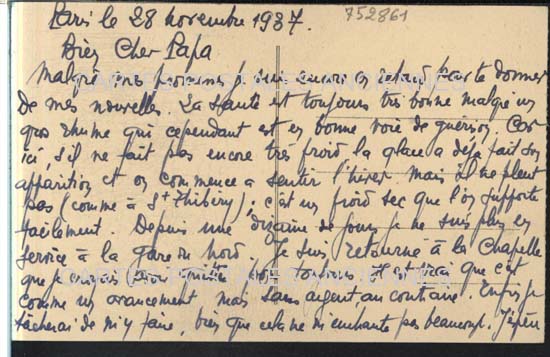 Paris le 28 novembre 1937.
752861
Bien Cher Papa
Malgré mes promesses je suis encore en retard pour te donner
De mes nouvelles. La santé est toujours très bonne malgré un
gros rhume qui cependant est en bonne voie de guérison. Car
ici, s'il ne fait pas encore très froid la glace a déjà fait son
apparition et on commence a sentir l'hiver. mais il ne pleut
pas (comme à St Thibery); c'est un froid sec que l'on supporte
facilement. Depuis une dizaine de jours je ne suis plus en
service à la gare du Nord. Je suis retourné à la Chapelle
que je croyais avoir quitté pour toujours. Il est vrai que c'est
comme un avancement mais sans argent, au contraire. Enfin je
tâcherai de m'y faire, bien que cela ne m'enchante pas beaucoup. J'espère